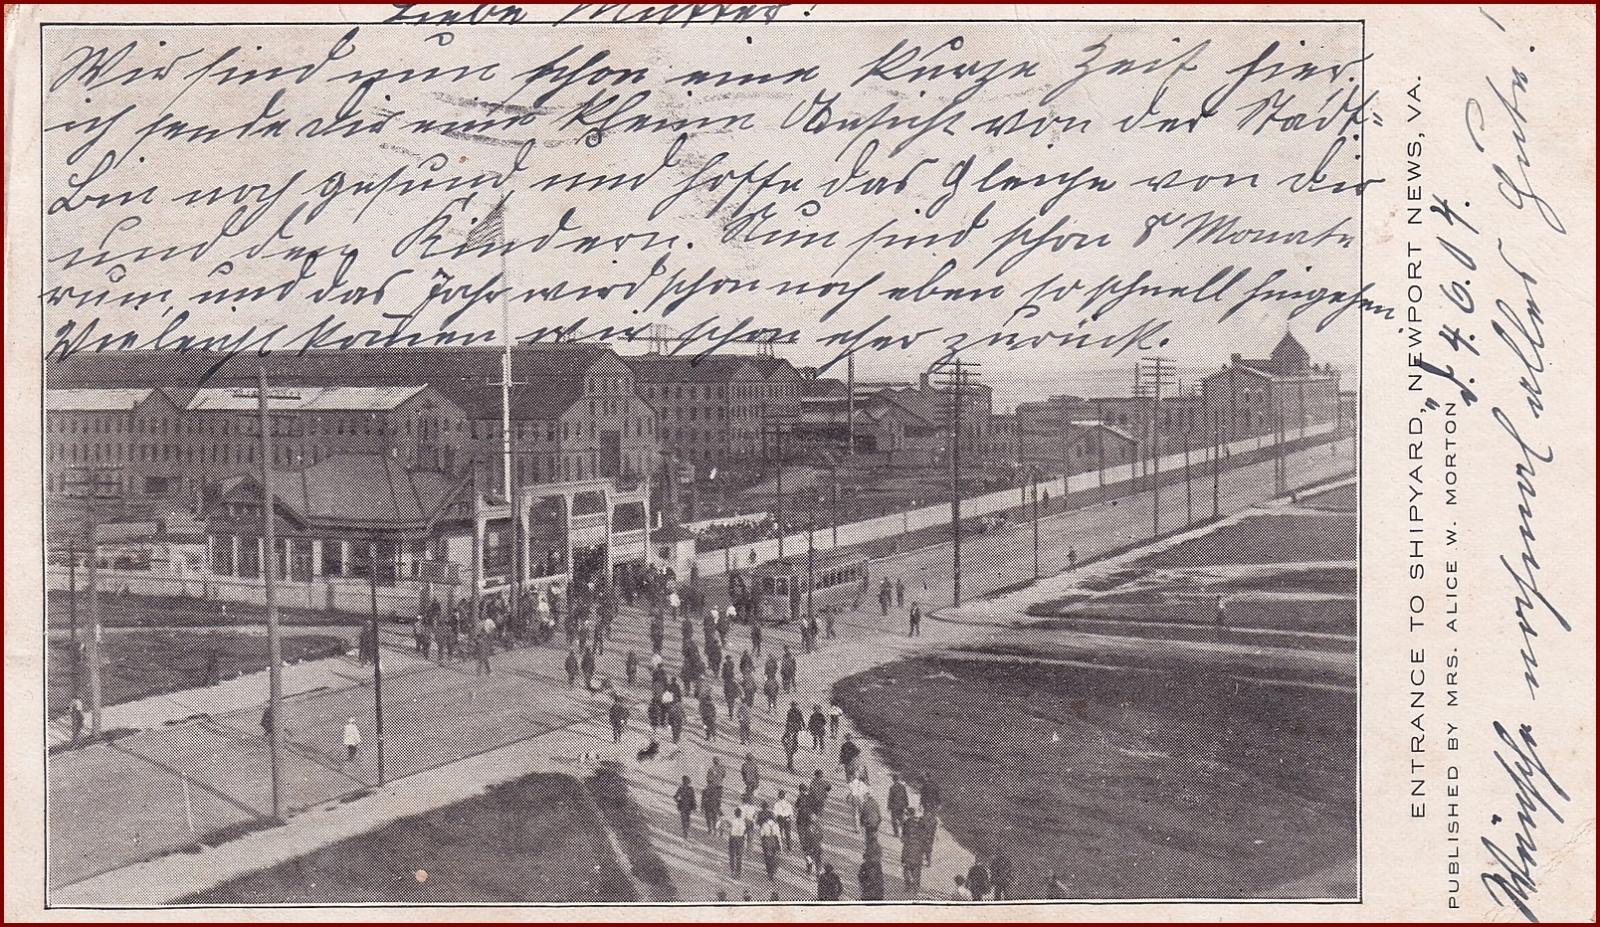 Liebe Mutter!
Wir sind nun schon eine kurze Zeit hier.
ich sende dir eine kleine Ansicht von der Stadt=
Bin noch gesund, und hoffe das gleiche von dir
und den Kindern. Nun sind schon 8 Monate
rum, und das Jahr wird schon noch eben so schnell hingehen
Vieleicht kommen wir schon eher zurück.
ENTRANCE TO SHIPYARD, NEWPORT NEWS, VA.
PUBLISHED BY MRS. ALICE W. MORTON
d. 4.6.04.